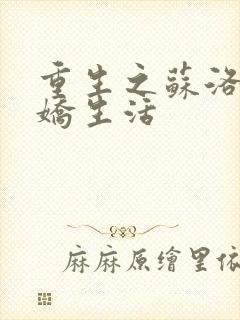 重生之蘇洛
嬌生活
麻麻原繪里依